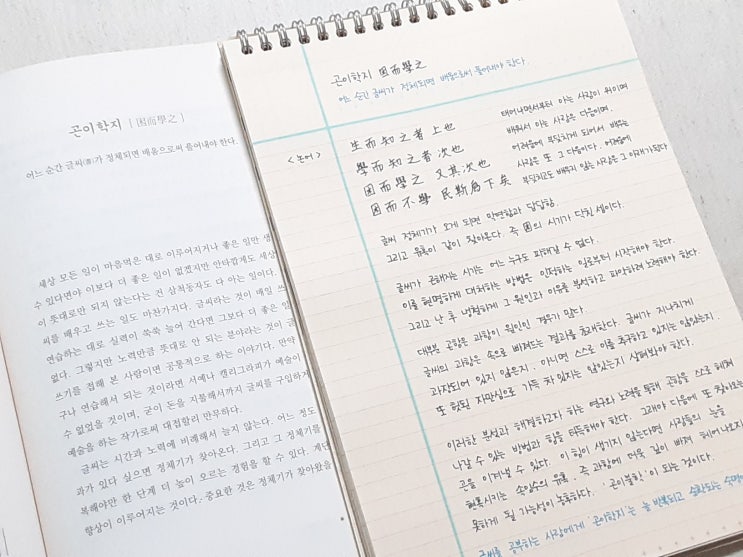 곤이학지 [困而學之]
어느 순간 글씨(書)가 정체되면 배움으로써 풀어내야 한다.
세상 모든 일이 마음먹은 대로 이루어지거나 좋은 일만 생
수 있다면야 이보다 더 좋은 일이 없겠지만 안타깝게도 세상
이 뜻대로만 되지 않는다는 건 삼척동자도 다 아는 일이다.
씨를 배우고 쓰는 일도 마찬가지다. 글씨라는 것이 매일 쓰
연습하는 대로 실력이 쑥쑥 늘어 간다면 그보다 더 좋은 일
없다. 그렇지만 노력만큼 뜻대로 안 되는 분야라는 것이 글
쓰기를 접해 본 사람이면 공통적으로 하는 이야기다. 만약
구나 연습해서 되는 것이라면 서예나 캘리그라피가 예술이
수 없었을 것이며, 굳이 돈을 지불해서까지 글씨를 구입하거
예술을 하는 작가로써 대접할리 만무하다.
글씨는 시간과 노력에 비례해서 늘지 않는다. 어느 정도
과가 있다 싶으면 정체기가 찾아온다. 그리고 그 정체기를
복해야만 한 단계 더 높이 오르는 경험을 할 수 있다. 계단
향상이 이루어지는 것이다. 중요한 것은 정체기가 찾아왔을
곤이학지 困而學之
어느 순간 글씨가 정체되면 배움으로써 풀어내야 한다.
<논어>
生而知之者 上也
學而知之者 次也
困而學之 又其次也
困而不學 民斯爲下矣
태어나면서부터 아는 사람이 위이며
배워서 아는 사람은 다음이며.
어려움에 부딪히게 되어서 배우는
사람은 또 그 다음이다. 어려움에
부딪히고도 배우지 않는 사람은 그 아래가 된다
글씨 정체기가 오게 되면 막연함과 답답함.
그리고 유혹이 같이 찾아온다. 즉 困의 시기가 닥친 셈이다.
글씨가 곤해지는 시기는 어느 누구도 피해갈 수 없다.
이를 현명하게 대처하는 방법은 인정하는 일로부터 시작해야 한다.
그리고 난 후 냉철하게 그 원인과 이유를 분석하고 파악하려 노력해야 한다.
대부분 곤함은 과함이 원인인 경우가 많다.
글씨의 과함은 속으로 빠져드는 결과를 초래한다. 글씨가 지나치게
과장되어 있지 않은지. 아니면 스스로 이를 추구하고 있지는 않았는지.
또 헛된 자만심으로 가득 차 있지는 않았는지 살펴봐야 한다.
이러한 분석과 해결하고자 하는 연구와 노력을 통해 곤함을 스스로 헤쳐
나갈 수 있는 방법과 힘을 터득해야 한다. 그래야 다음에 또 찾아오는
곤을 이겨낼 수 있다. 이 힘이 생기지 않는다면 사람들의 눈을
현혹시키는 속임수의 유혹. 즉 과함에 더욱 깊이 빠져 헤어나오지
못하게 될 가능성이 농후하다. '곤이불학'이 되는 것이다.
글씨를 공부하는 사람에게 '곤이학지'는 늘 반복되고 순환되는 숙명